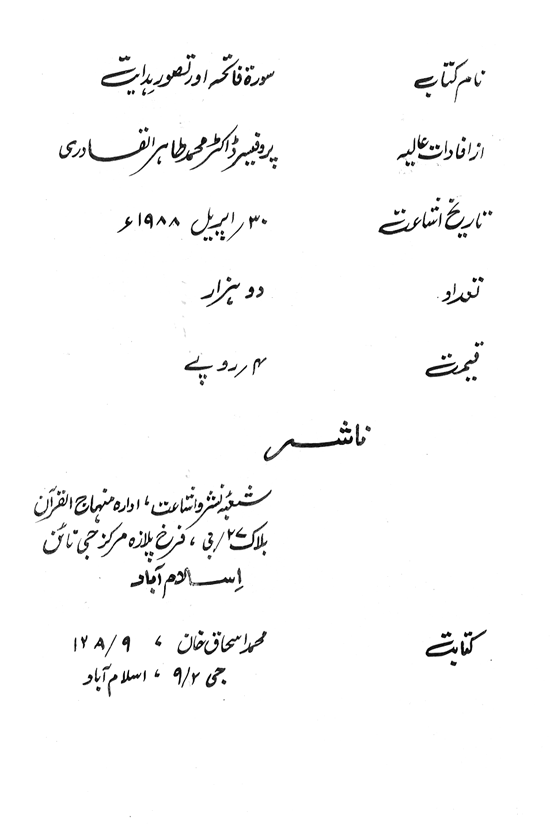 نام کتاب سورۃ فاتحہ اور تصور ہدایت
از افادات عالیہ پروفیسر ڈاکٹر محمد طاہر القادری
تاریخ اشاعت ۳۰/اپریل ۱۹۸۸ء
تعداد دو ہزار
قیمت ۴/روپے
ناشر
شعبۂ نشر و اشاعت، ادارہ منہاج القرآن
بلاک ۲۷/بی، فرخ پلازہ مرکز جی نائن
اسلام آباد
کتابت محمد اسحاق خان، ۹/۱۲۸
جی ۹/۲، اسلام آباد